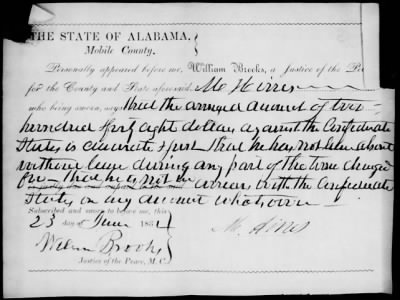 THE STATE OF ALABAMA,
Mobile County.
Personally appeared before me, William Brooks, a Justice of the Pe
for the County and State aforesaid, M. Hines
who being sworn, says that the annexed amount of two
hundred & forty eight dollars against the Confederate
States is accurate & just - That he has not been absent
without leave during any part of the time charged
for - that he is not in arrears with the Confederate
States on any account whatsoever -
Subscribed and sworn to before me, this
23 day of June 1864
M. Hines
William Brooks
Justice of the Peace, M. C.